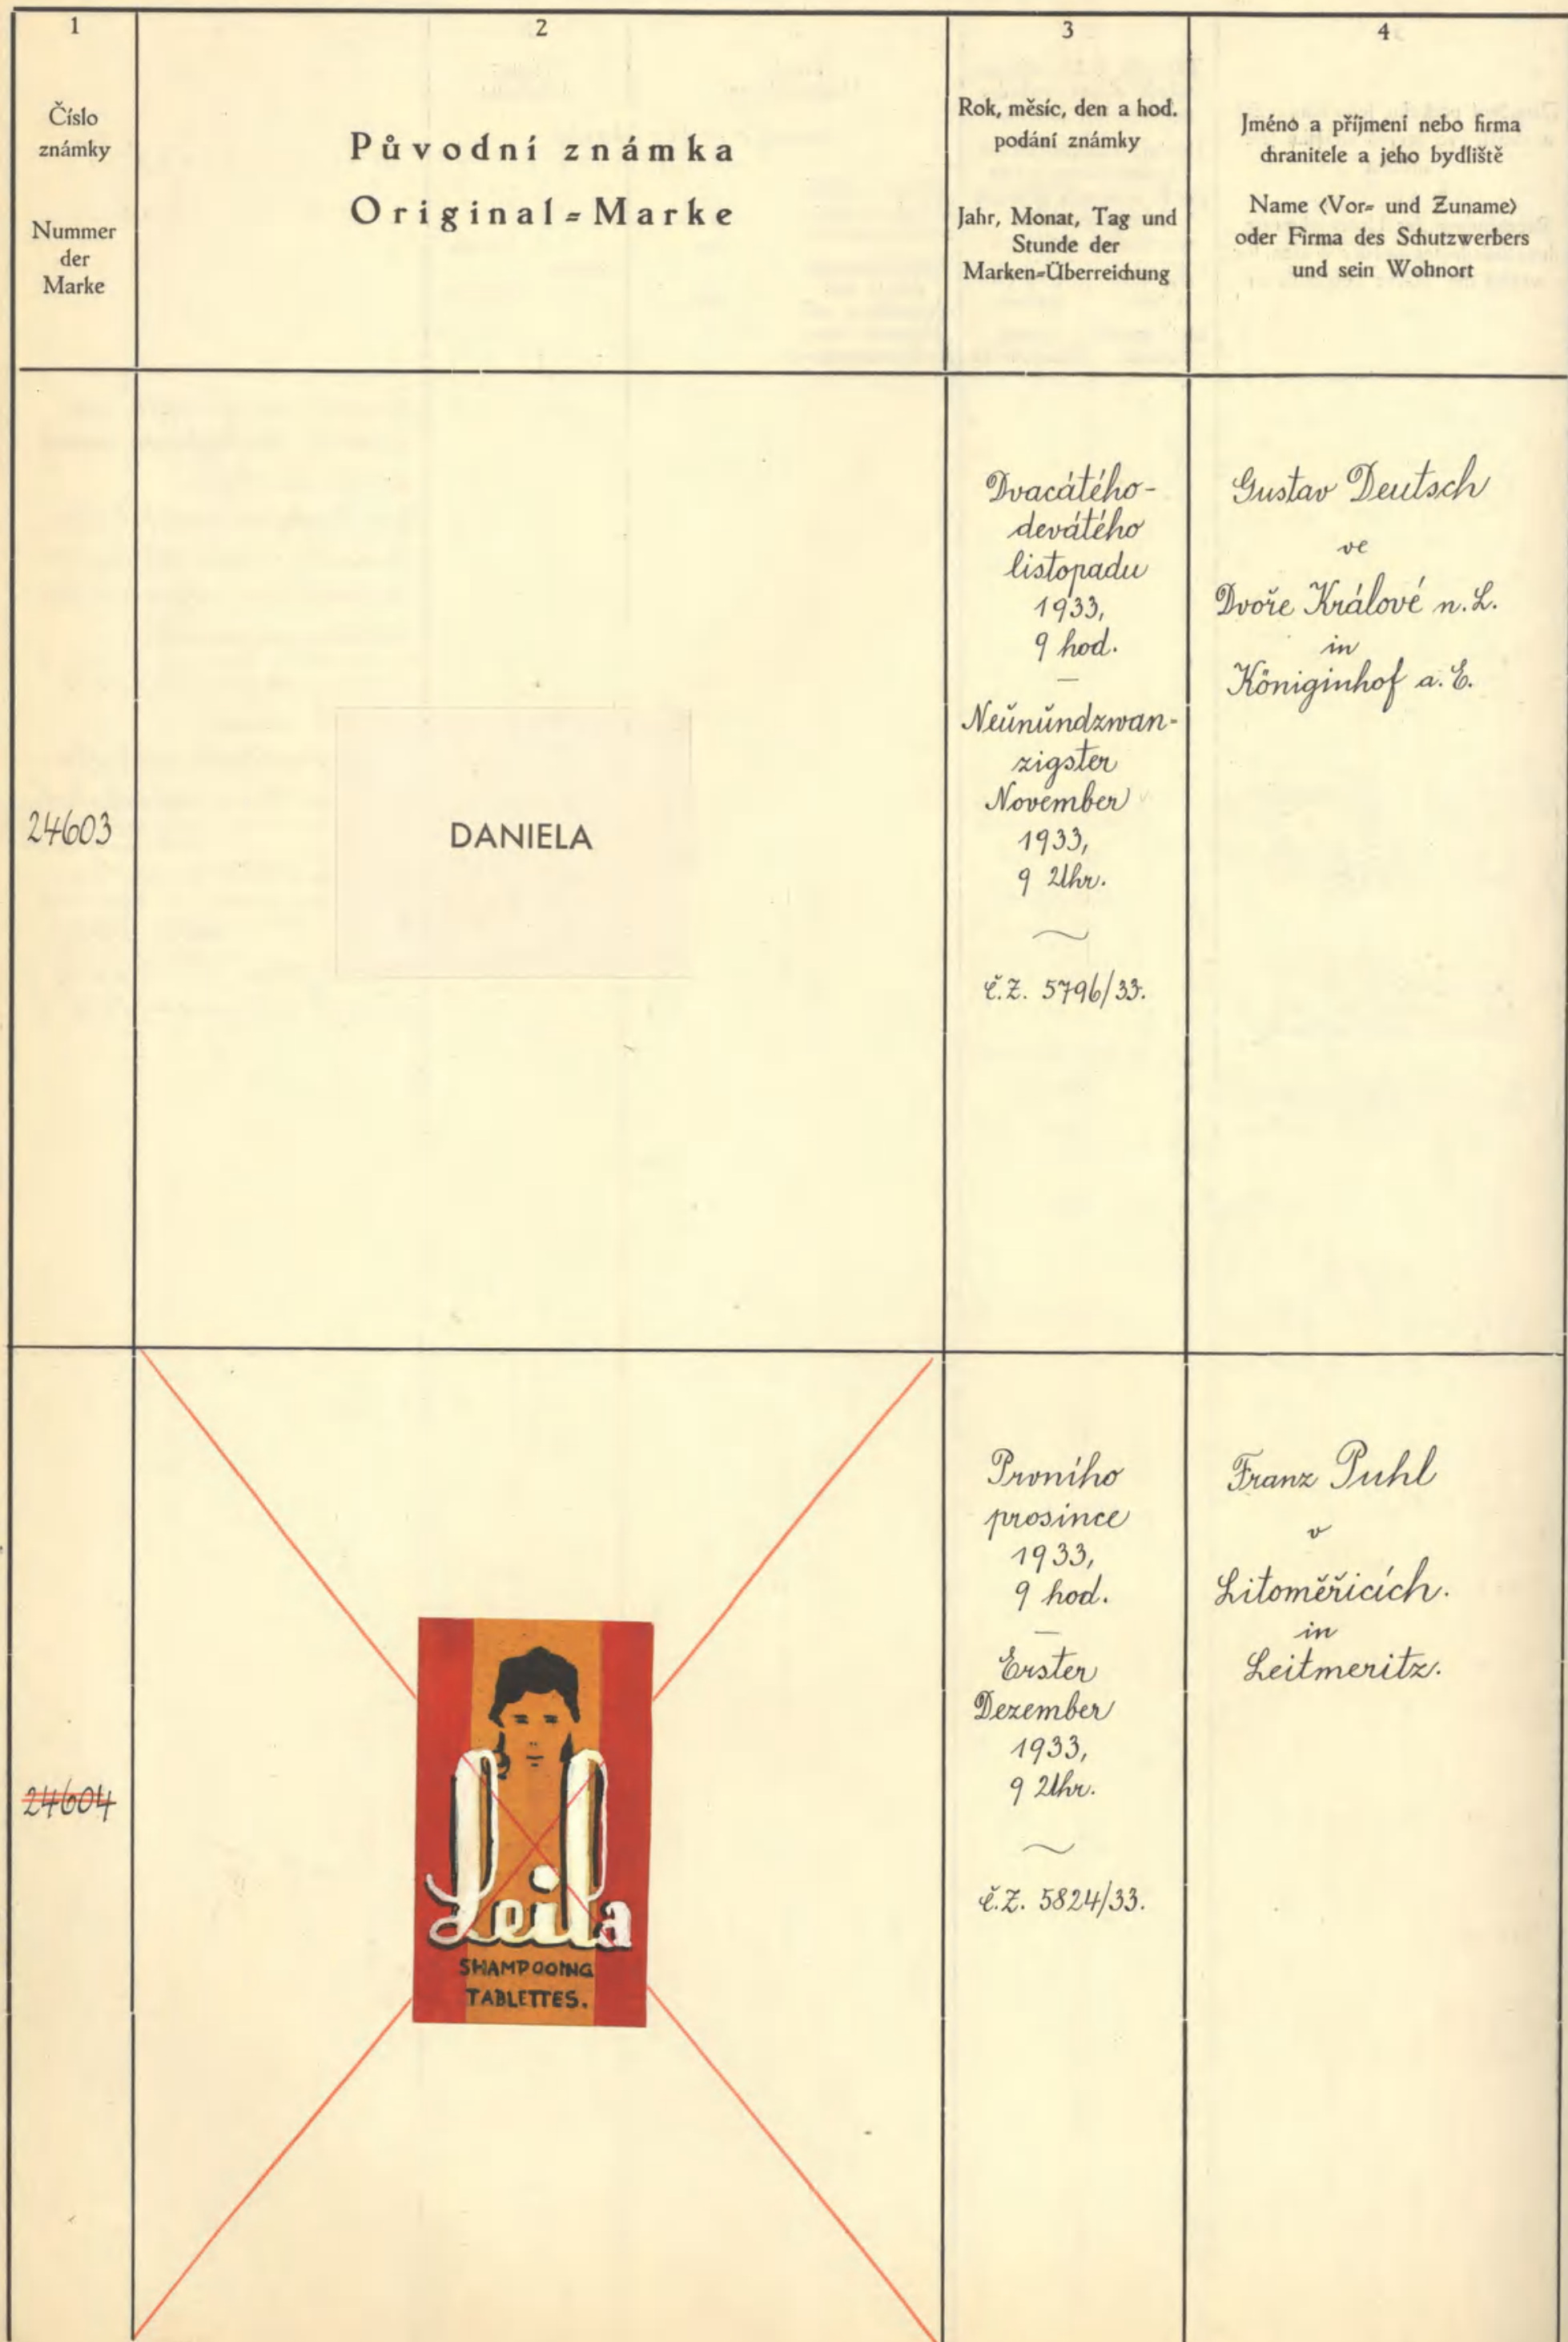 1
Číslo
známky
Nummer
der
Marke
2
Původní známka
Original=Marke
3
Rok, měsíc, den a hod.
podání známky
Jahr, Monat, Tag und
Stunde der
Marken=Überreichung
4
Jméno a příjmení nebo firma
chranitele a jeho bydliště
Name (Vor= und Zuname)
oder Firma des Schutzwerbers
und sein Wohnort
24603
DANIELA
Dvacátého-
devátého
listopadu
1933,
9 hod.
—
Neunundzwan-
zigster
November
1933,
9 Uhr.
č.Z. 5796/33.
Gustav Deutsch
ve
Dvoře Králové n. L.
in
Königinhof a. E.
24604
Leila
SHAMPOOING
TABLETTES.
Prvního
prosince
1933,
9 hod.
—
Erster
Dezember
1933,
9 Uhr.
č.Z. 5824/33.
Franz Puhl
v
Litoměřicích.
in
Leitmeritz.